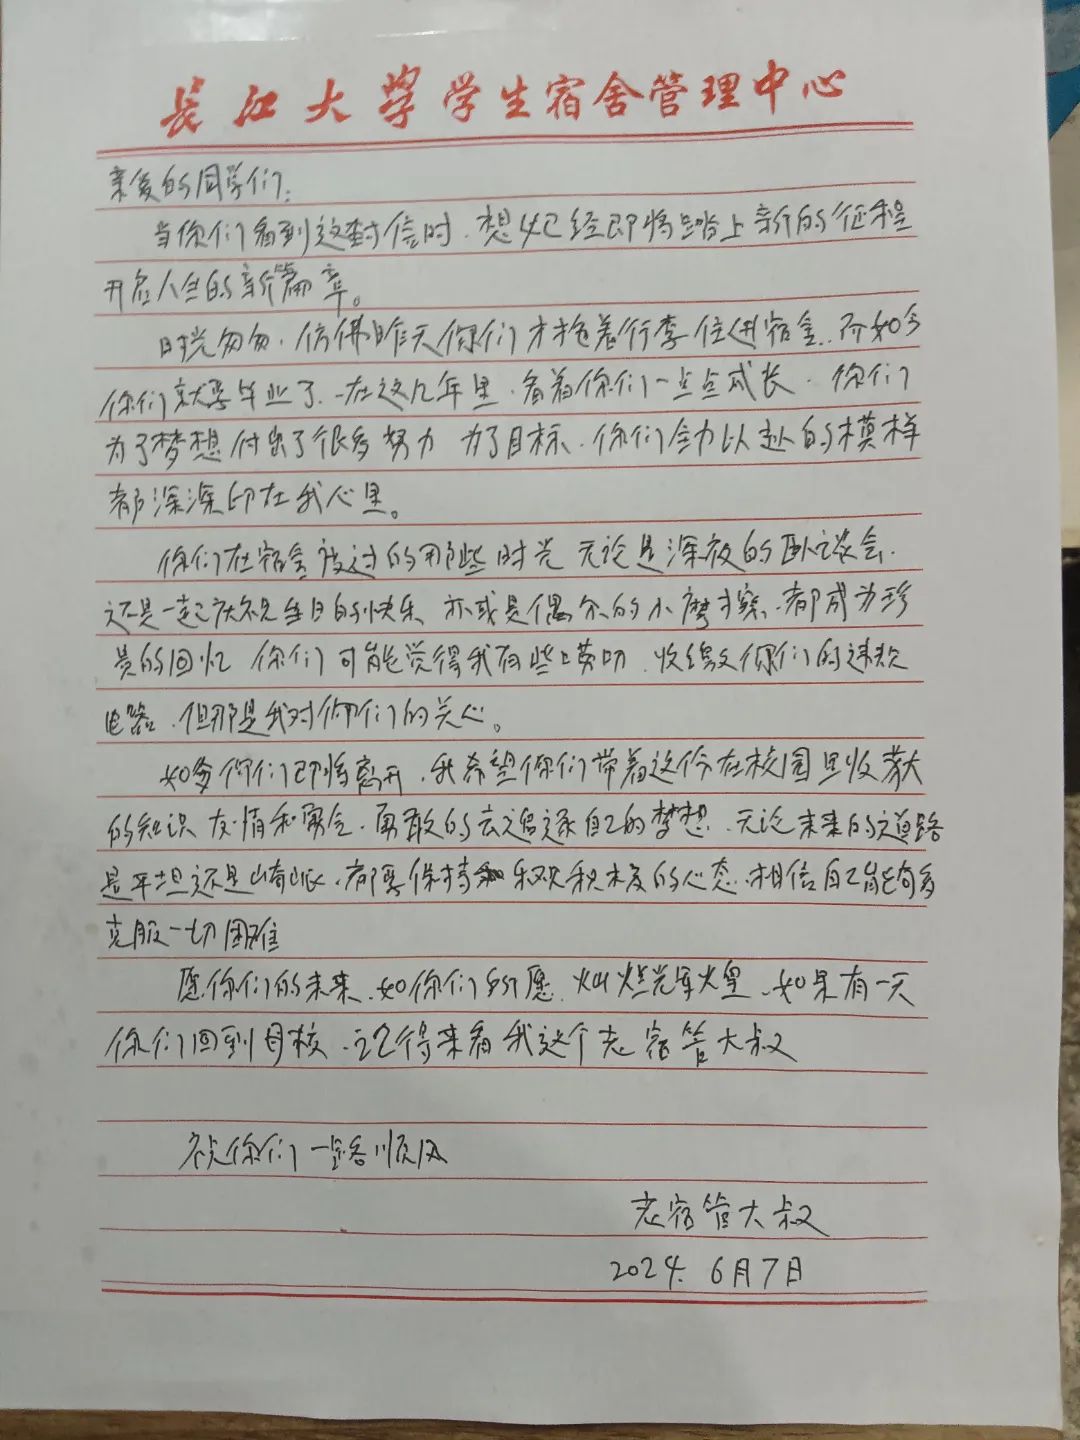 长江大学学生宿舍管理中心
亲爱的同学们：
当你们看到这封信时，想必已经即将踏上新的征程
开启人生的新篇章。
时光匆匆，仿佛昨天你们才抱着行李住进宿舍，而如今
你们就要毕业了，在这几年里，看着你们一点点成长，你们
为了梦想付出了很多努力 为了目标、你们全力以赴的模样
都深深印在我心里。
你们在宿舍度过的那些时光 无论是深夜的卧谈会，
还是一起庆祝生日的快乐 亦或是偶尔的小摩擦，都成为珍
贵的回忆 你们可能觉得我有些唠叨，收缴你们的违规
电器，但那是我对你们的关心。
如今你们即将离开，我希望你们带着这份在校园里收获
的知识 友情和勇气，勇敢的去追逐自己的梦想，无论未来的道路
是平坦还是崎岖，都要保持乐观积极的心态，相信自己能
克服一切困难
愿你们的未来，如你们所愿，灿烂辉煌，如果有一天
你们回到母校，记得来看我这个老宿管大叔
祝你们一路顺风
老宿管大叔
2024.6月7日